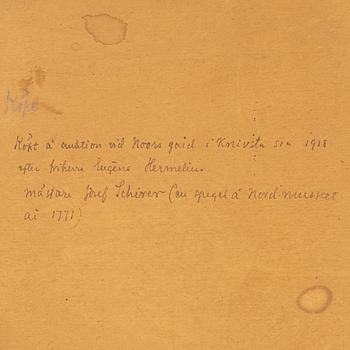 Köpt
Köpt å auktion vid Noors gård i Knivsta sn 1918
efter friherre Eugène Hermelin.
mästare Josef Schürer (en spegel å Nord. museet
år 1771)